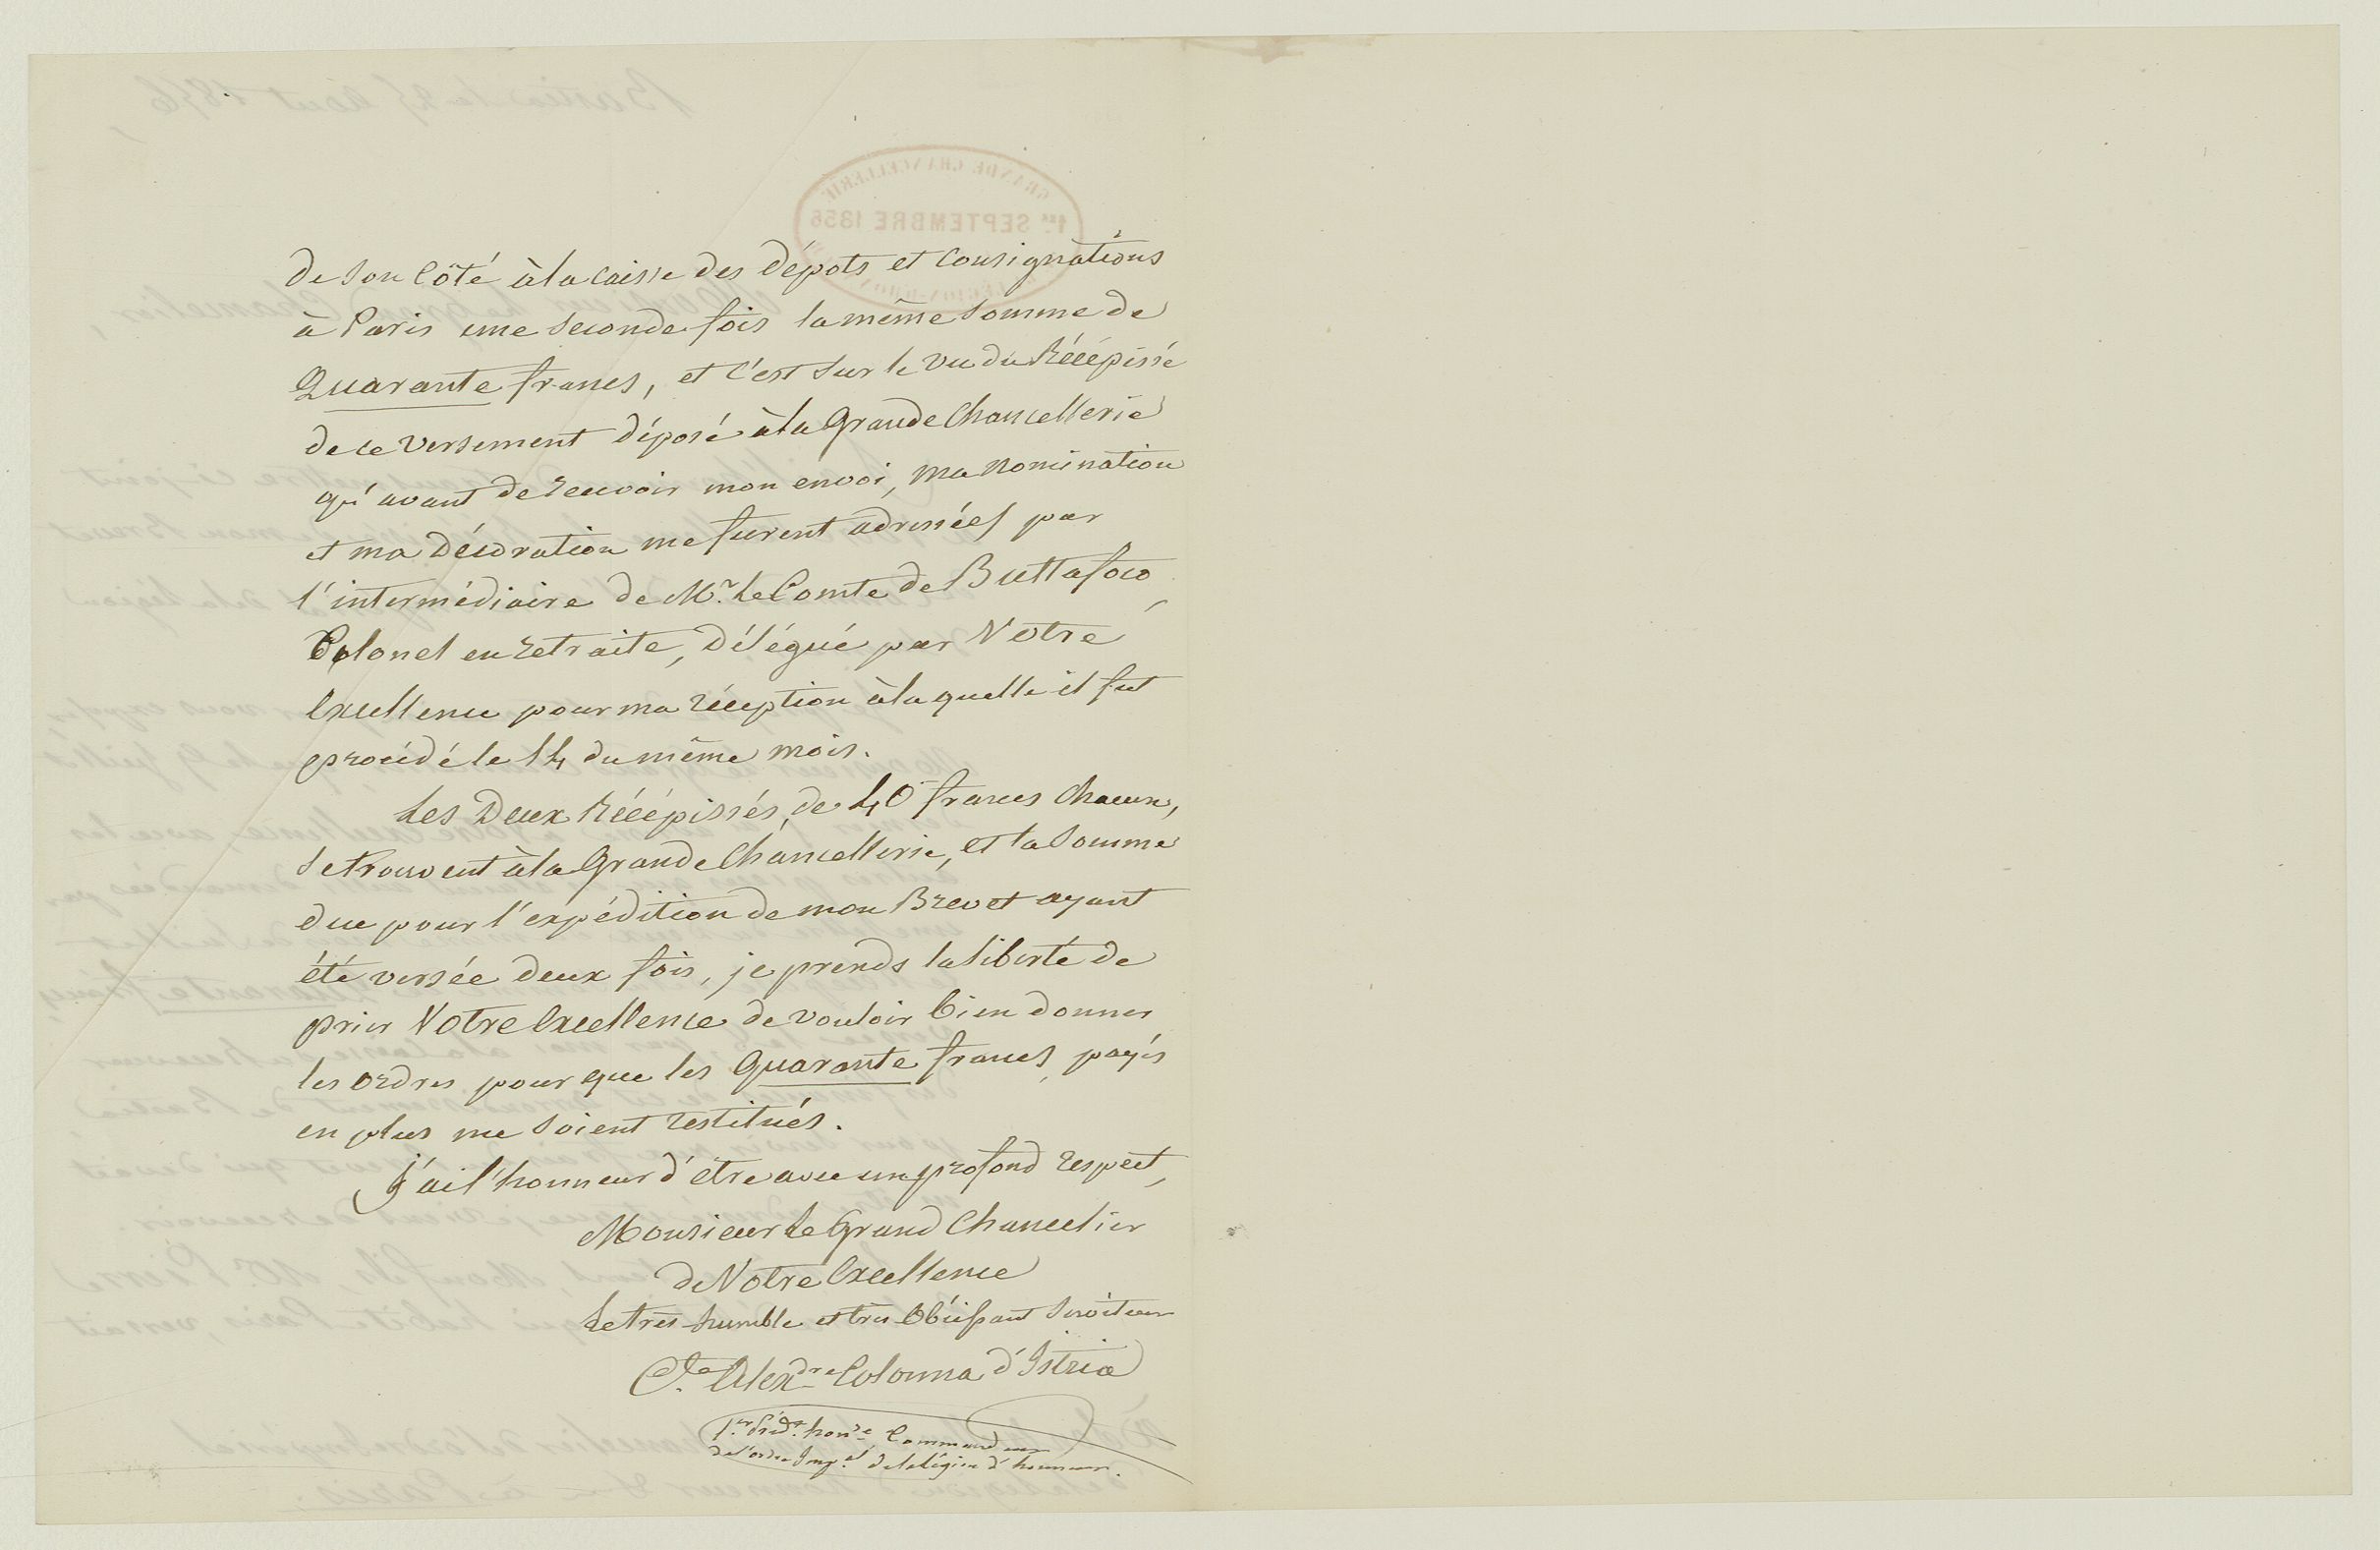 de Son Côté à la Caisse des Dépots et Consignations
à Paris une Seconde fois la même Somme de
Quarante francs, et C'est Sur le vu du Récépissé
de ce Versement déposé à la Grande Chancellerie
qu'avant de recevoir mon envoi, ma nomination
et ma décoration me furent adressées par
l'intermédiaire de Mr. Le Comte de Buttafoco,
Colonel en retraite, Délégué par Votre
Excellence pour ma réception à laquelle il fut
procédé le 14 du même mois.
Les Deux Récépissés, de 40 francs Chacun,
Se trouvent à la Grande Chancellerie, et la Somme
due pour l'expédition de mon Brevet ayant
été versée Deux fois, je prends la liberté de
prier Votre Excellence de vouloir bien donner
les ordres pour que les Quarante francs payés
en plus me Soient restitués.
J'ai l'honneur d'être avec un profond respect,
Monsieur Le Grand Chancelier
de Votre Excellence
Le très humble et très Obéissant Serviteur
Cte. Alexdre Colonna d'Istria
1er. Présidt. honre. Commandeur
de l'ordre Impal. de la légion d'honneur.
GRANDE CHANCELLERIE
1ER SEPTEMBRE 1856